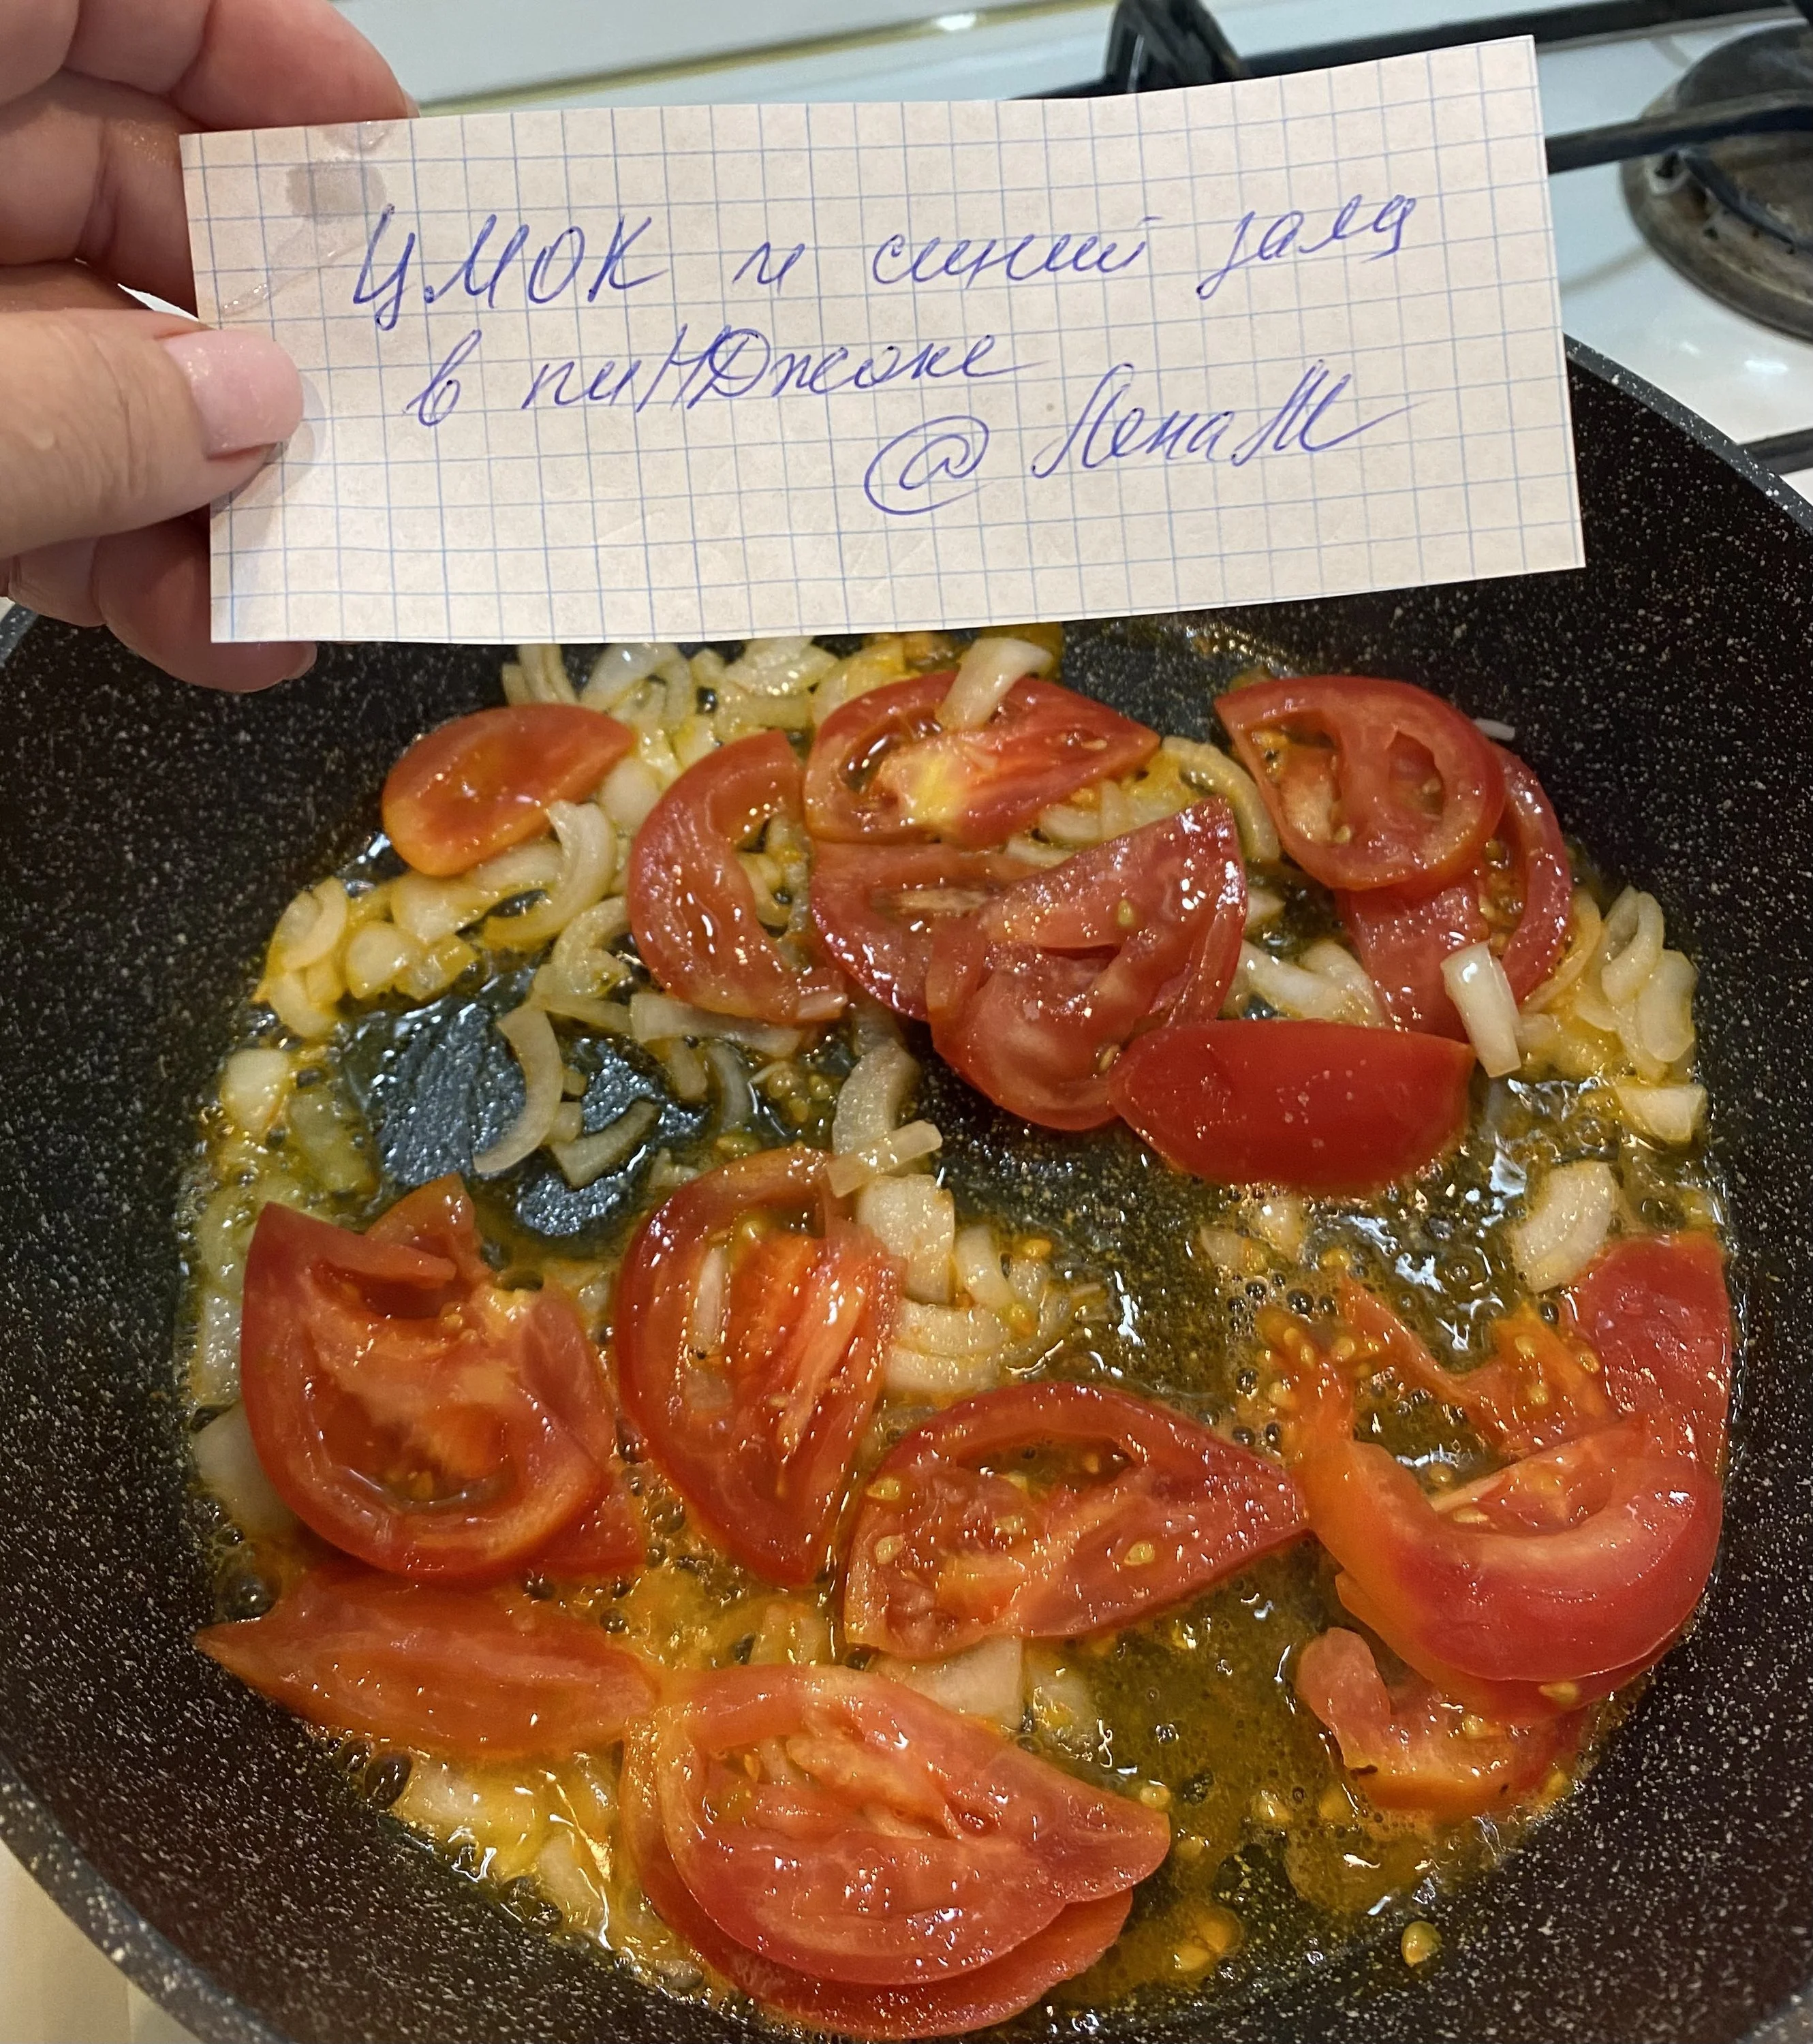 ЦМОК и синий заяц
в пиНДжоке
@ЛенаМ